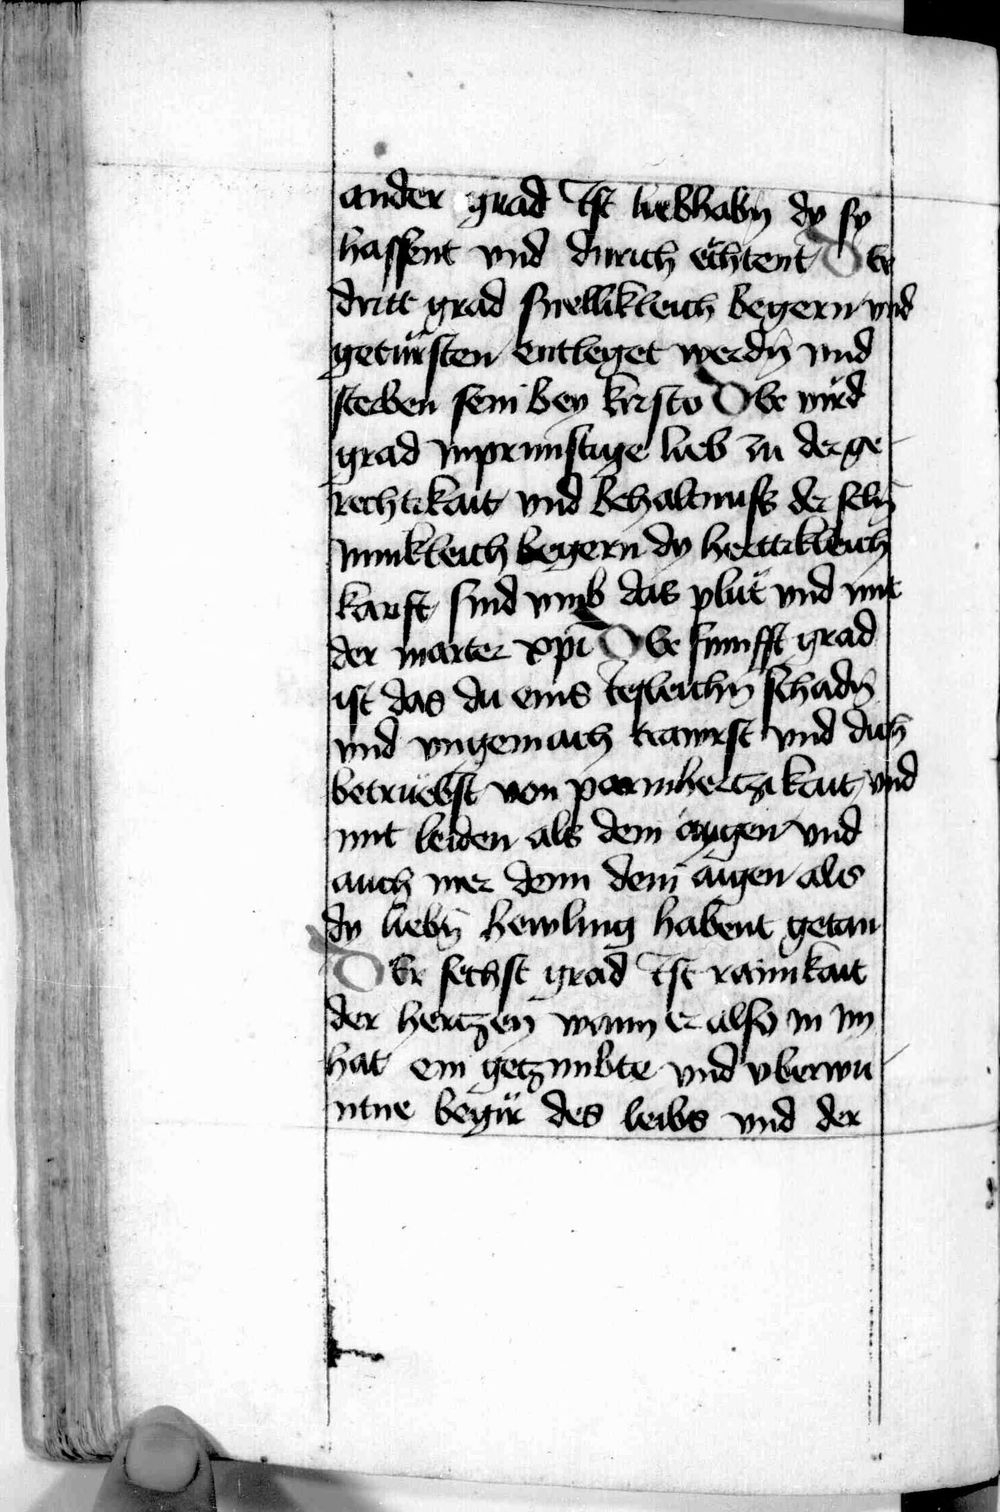 ander grad Ist liebhabn̄ dy sy
hassent vnd durich echtent Der
dritt grad snellikleich begern vnd
getürsten entleget werdn̄ vnd
sterben sein bey kristo Der vird
grad inprünstige lieb zu der ge
rechtikait vnd behaltnuss der seln̄
innikleich begern dy hertikleich
kauft sind vmb das plüt vnd mit
der marter xpi Der funfft grad
ist das du eins iesleichn̄ schadn̄
vnd vngemach trawrst vnd dich
betruebst von parmhertzikait vnd
mit leiden als dem aygen vnd
auch mer denn dem aigen als
dy liebn̄ heyling habent getan
Der sechst grad Ist rainikait
der hertzen wann er also in im
hat ein getzimbte vnd vberwu
ntne begir des leibs vnd der